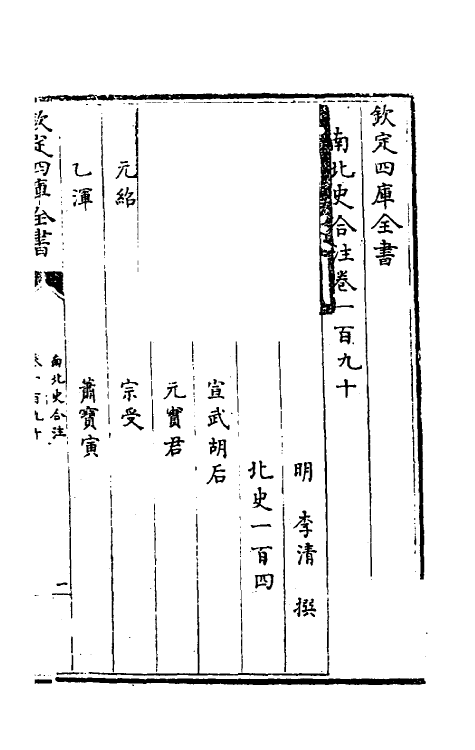 欽定四庫全書
南北史合注卷一百九十
明 李清 撰
北史一百四
宣武胡后
元寶君
元紹 宗受
乙渾 蕭寶寅
欽定四庫全書 南北史合注 卷一百九十 二